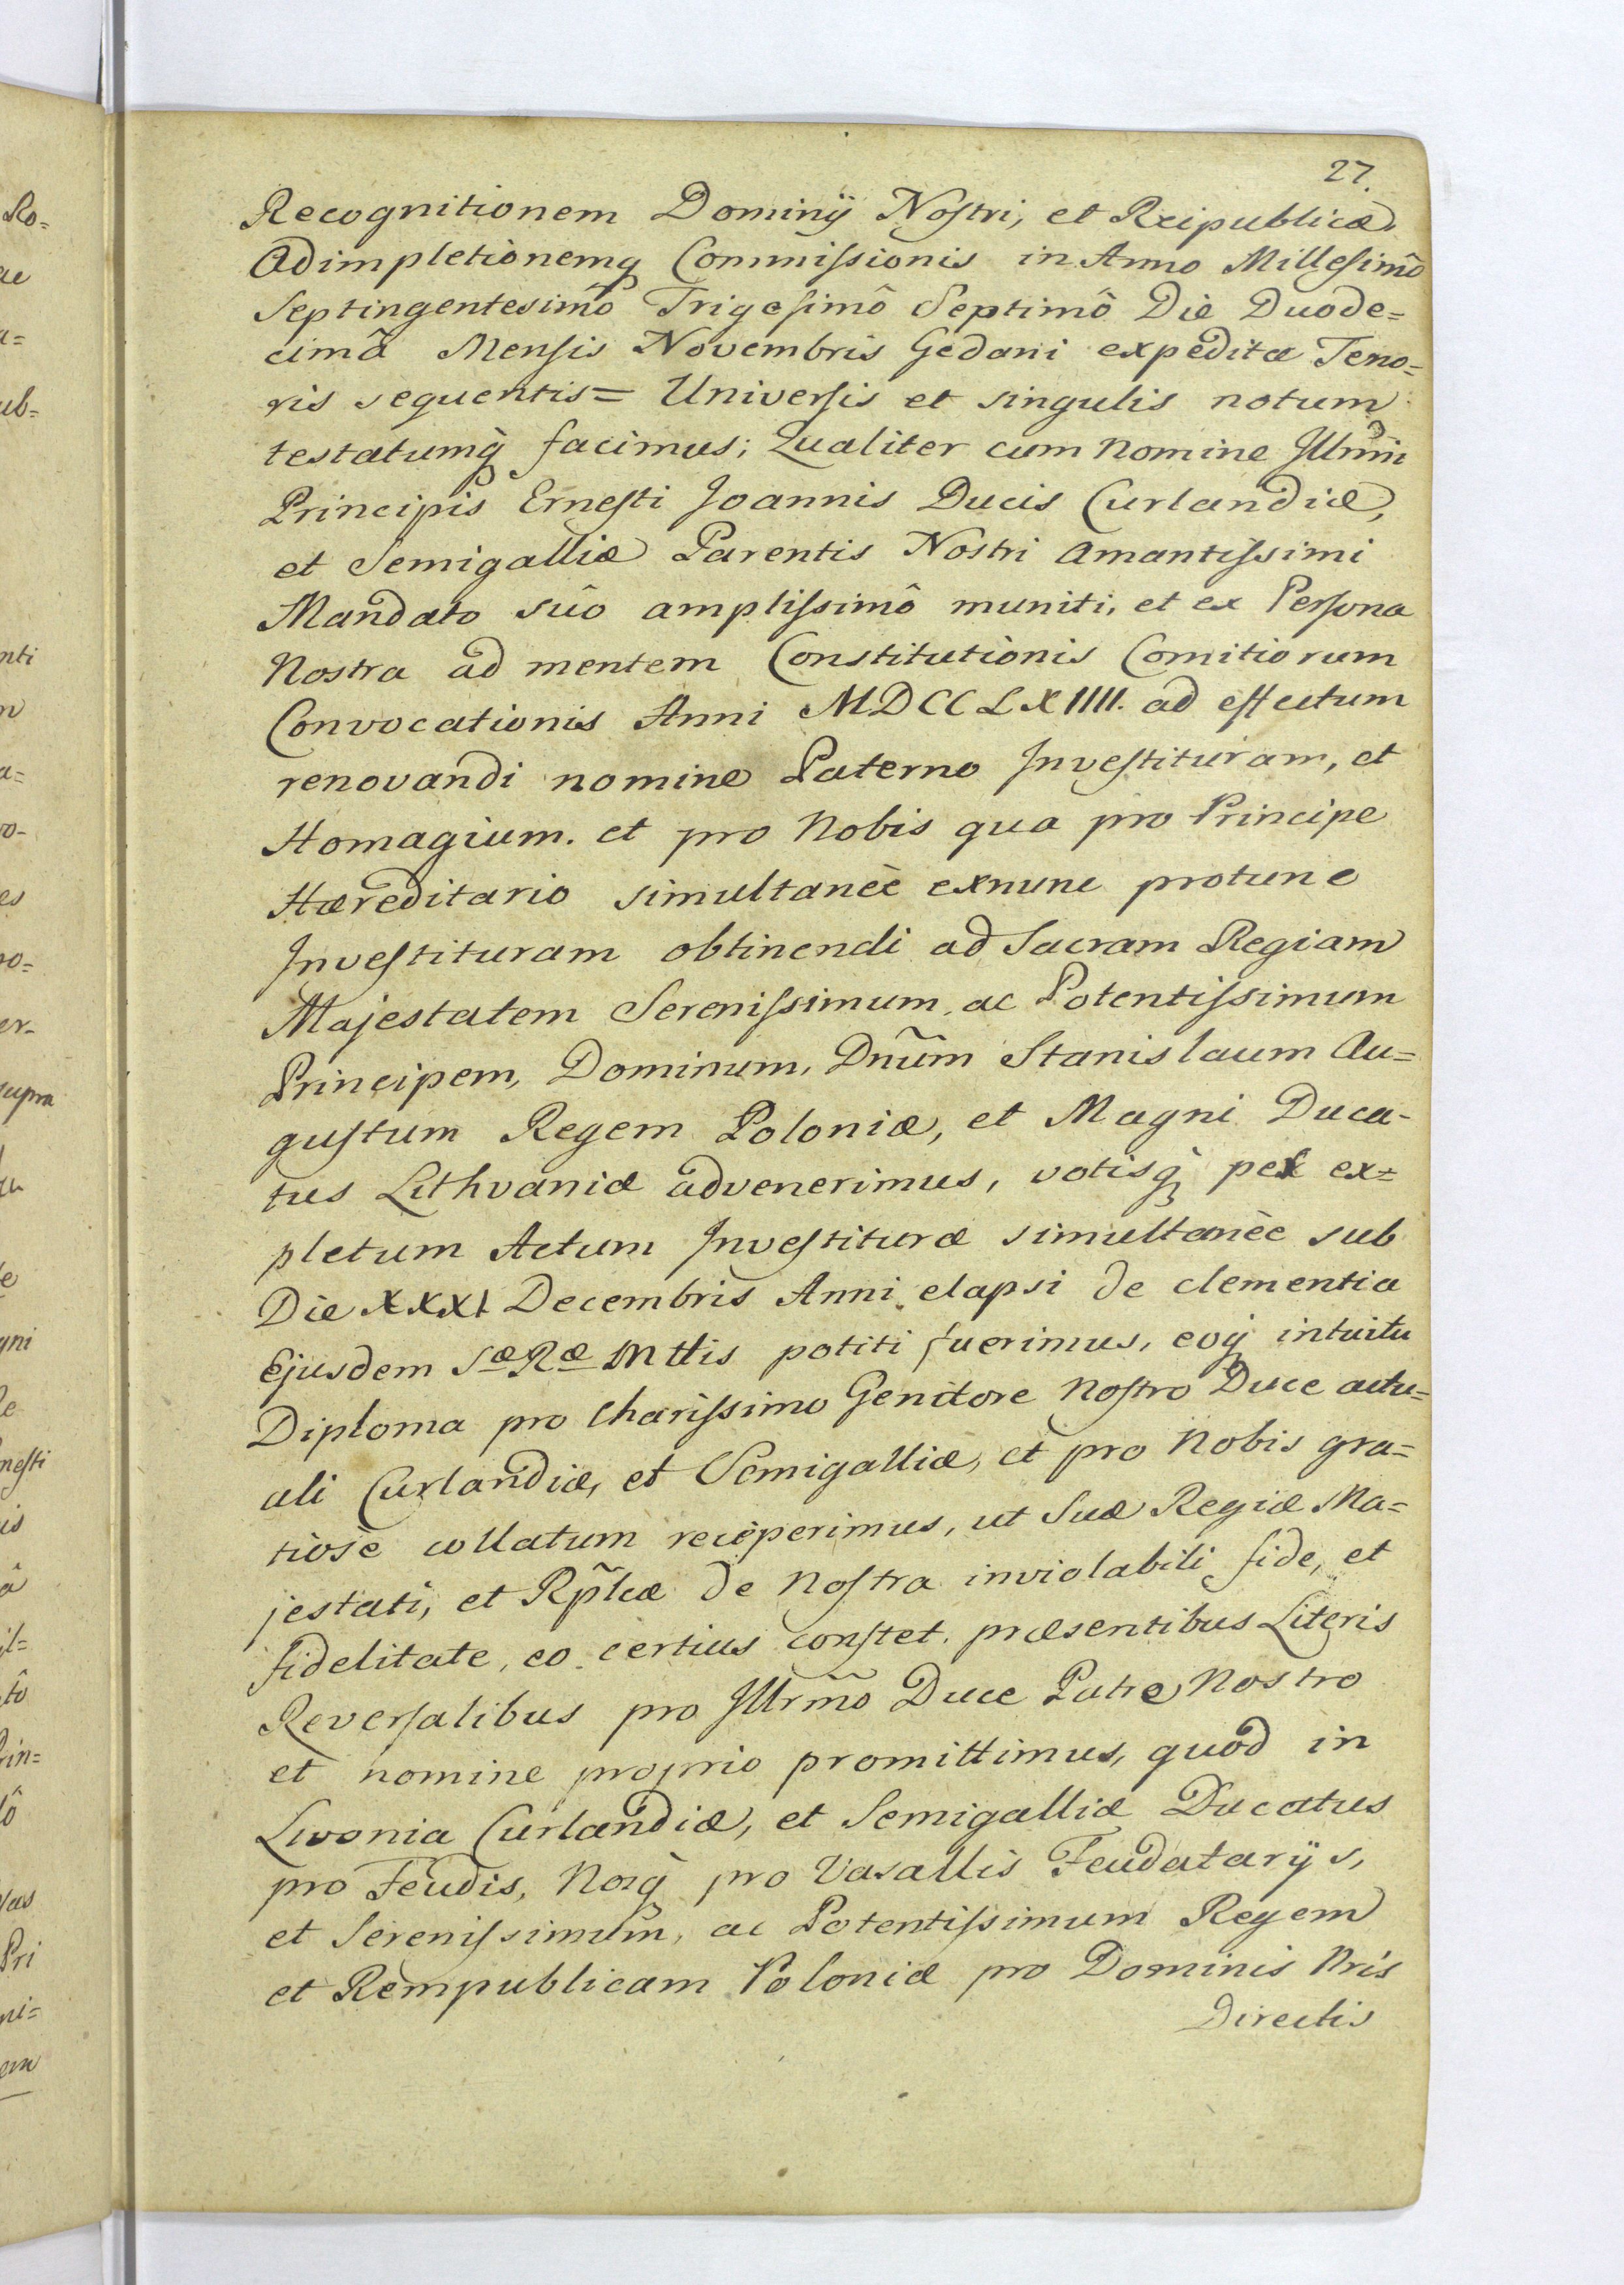 27.
Recognitionem Dominij Nostri, et Reipublicæ
Adimpletionemq Commissionis in Anno Millesimô
Septingentesimô Trigesimô Septimô Die Duode=
cimâ Mensis Novembris Gedani expeditæ Teno=
ris sequentis= Universis et singulis notum
testatumq facimus; Qualiter cum Nomine Illmi
Principis Ernesti Joannis Ducis Curlandiæ,
et Semigalliæ Parentis Nostri Amantissimi
Mandato suô amplissimô muniti, et ex Persona
Nostra ad mentem Constitutionis Comitiorum
Convocationis Anni MDCCLXIIII. ad effectum
renovandi nomine Paterno Investituram, et
Homagium. et pro Nobis qua pro Principe
Hæreditario simultaneè exnunc protunc
Investituram obtinendi ad Sacram Regiam
Majestatem Serenissimum, ac Potentissimum
Principem, Dominum, Dnum Stanislaum Au=
gustum Regem Poloniæ, et Magni Duca-
tus Lithvaniæ advenerimus, votisq per ex=
pletum Actum Investituræ simultaneè sub
Die XXXI Decembris Anni elapsi de clementia
Ejusdem Sæ Ræ Mttis potiti fuerimus, eoq intuitu
Diploma pro Charissimo Genitore Nostro Duce actu=
ali Curlandiæ, et Semigalliæ, et pro Nobis gra=
tiosè collatum receperimus, ut Suæ Regiæ Ma=
jestati, et Rplcæ de Nostra inviolabili fide, et
fidelitate, eo certius constet. præsentibus Literis
Reversalibus pro Illrmo Duce Patre Nostro
et nomine proprio promittimus, quod in
Livonia Curlandiæ, et Semigalliæ Ducatus
pro Feudis, Nosq pro Vasallis Feudatarijs,
et Serenissimum, ac Potentissimum Regem
et Rempublicam Poloniæ pro Dominis Nris
Directis